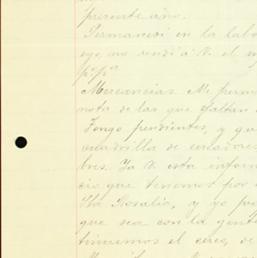 presente año.
Permanecí en la labo
eso no rendí á V. el m
ppo ppo
Mercancías. Me perm
nota de las que faltan
Tengo pendientes, y qu
cuadrilla de cercadores
bres. Ya V. esta inform
cio que tenemos por
Sta Rosalía, y yo pr
que sea con la gente
tinuemos el cerco, de